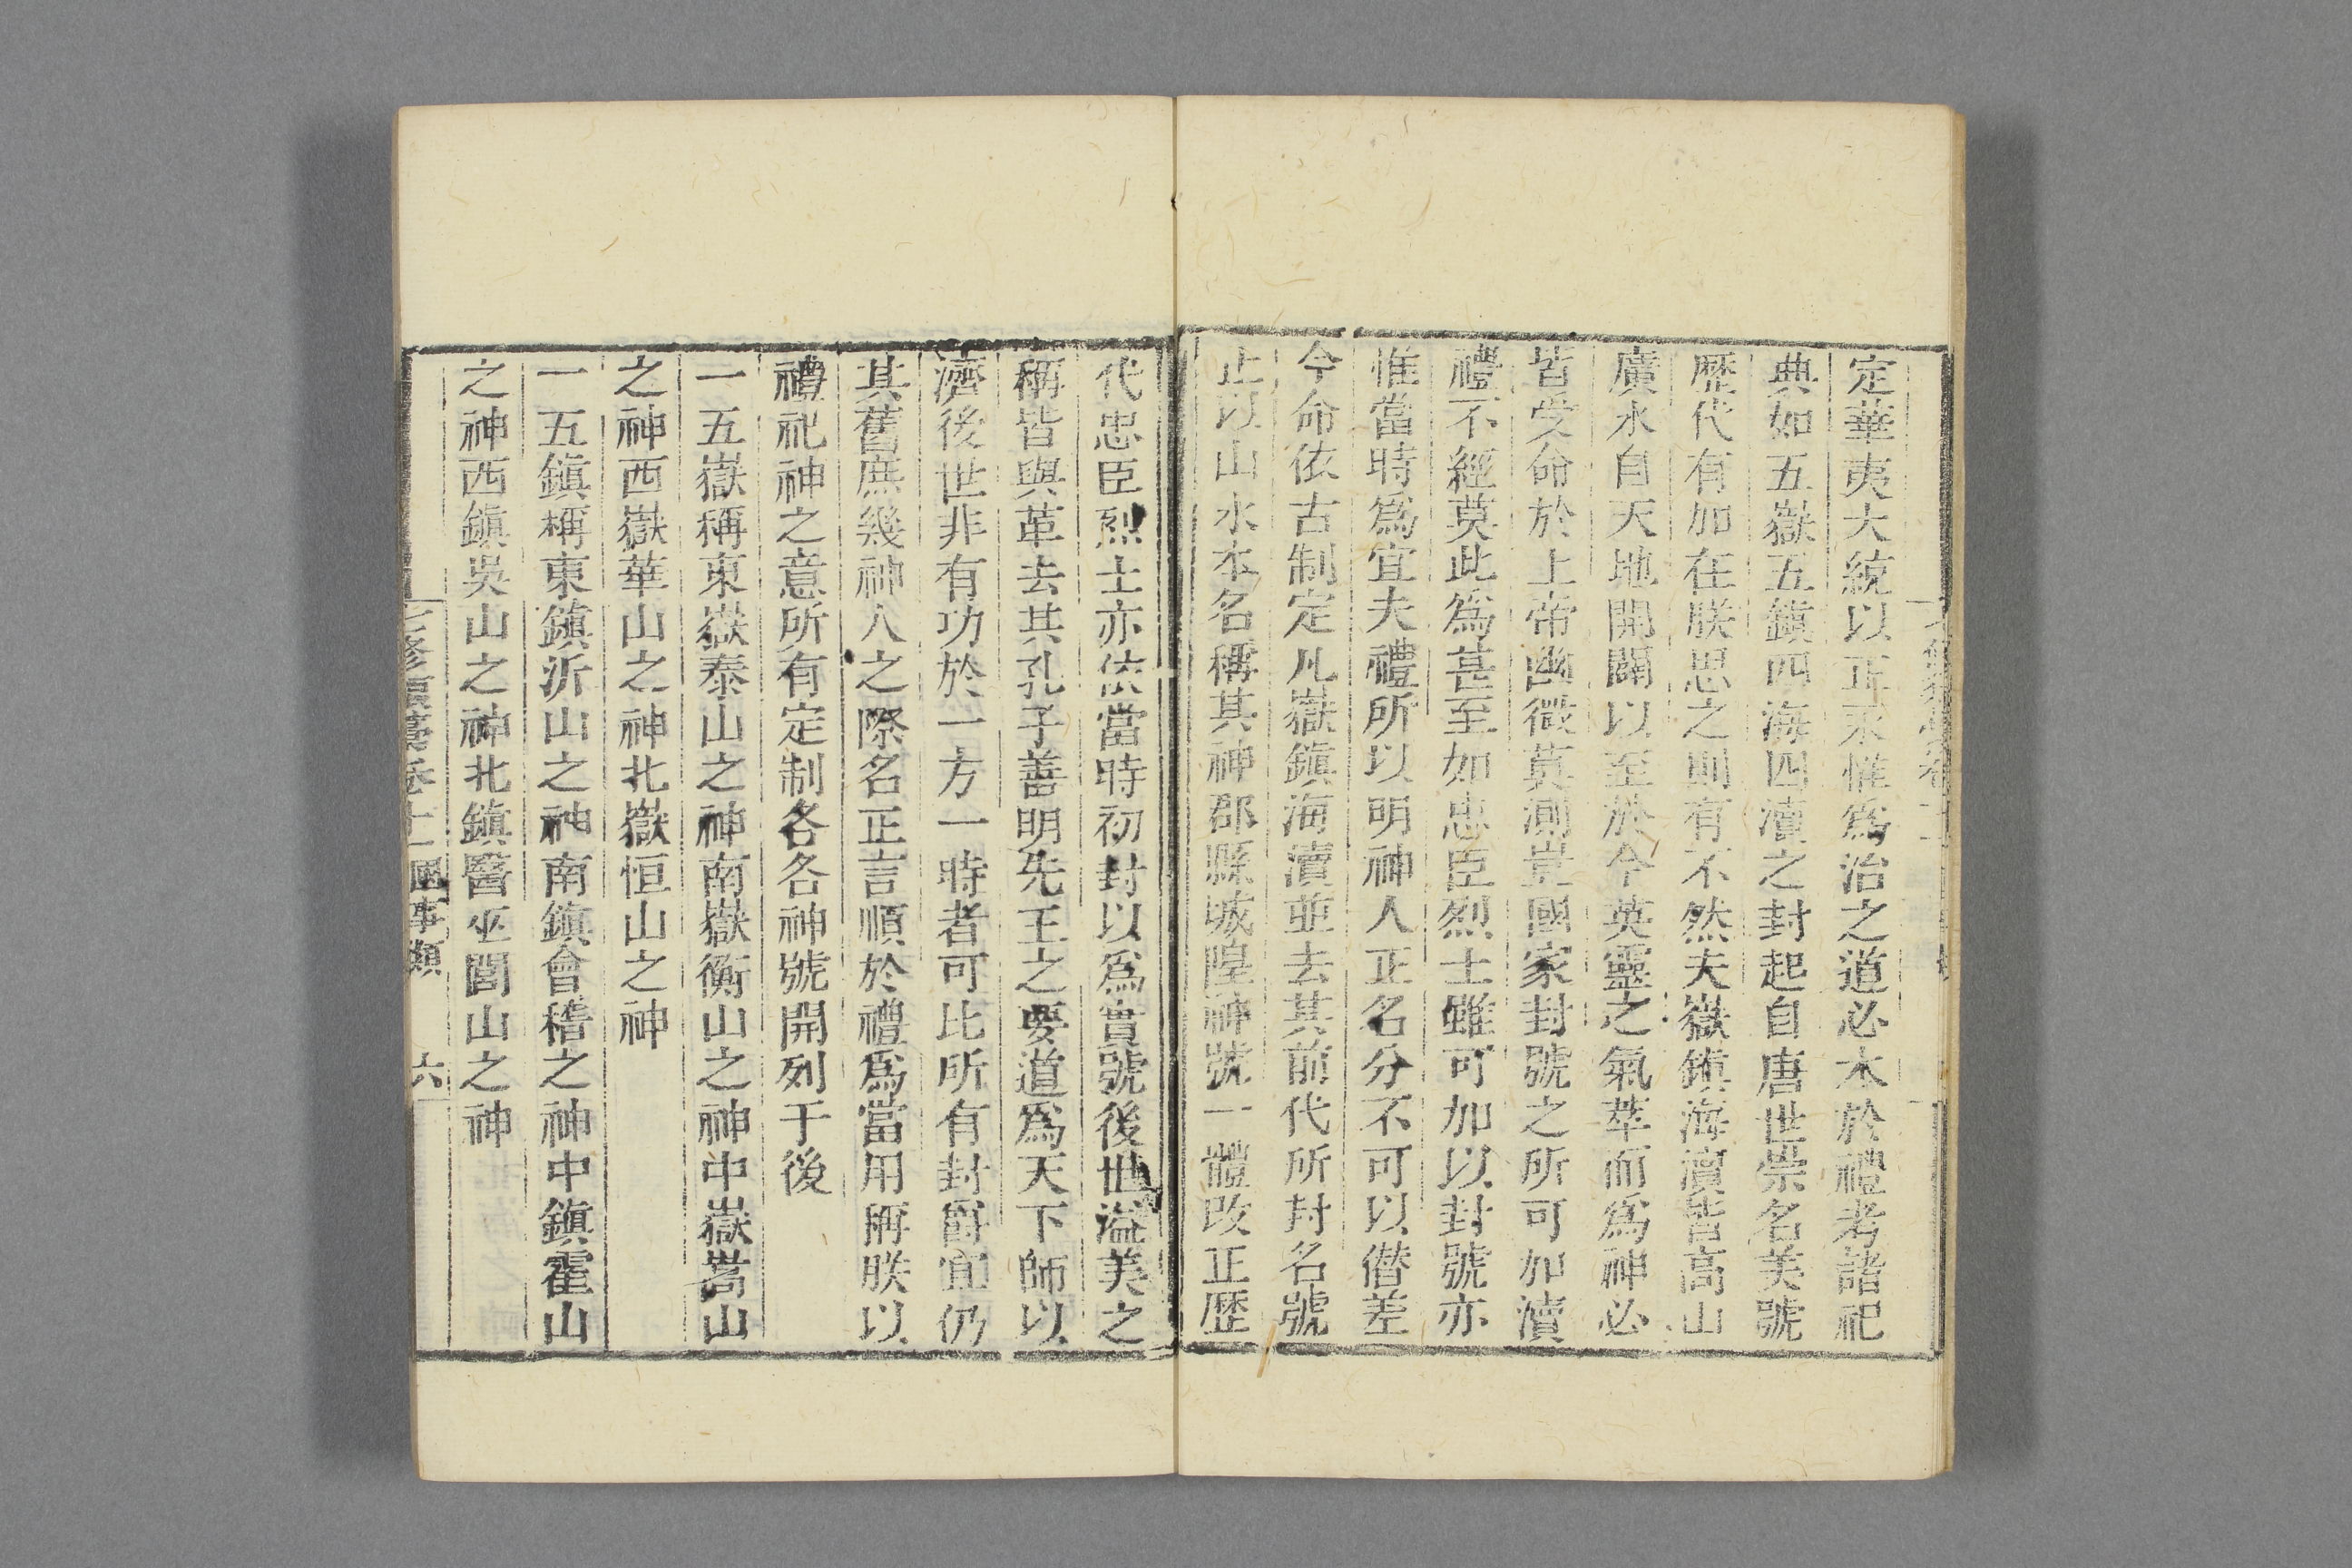 定華夷大統以正永惟爲治之道必本於禮考諸祀
典如五嶽五鎮四海四瀆之封起自唐世崇名美號
歷代有加在朕思之則有不然夫嶽鎮海瀆皆高山
廣水自天地開闢以至於今英靈之氣萃而爲神必
皆受命於上帝幽微莫測豈國家封號之所可加瀆
禮不經莫此爲甚至如忠臣烈士雖可加以封號亦
惟當時爲宜夫禮所以明神人正名分不可以僭差
今命依古制定凡嶽鎮海瀆並去其前代所封名號
止以山水本名稱其神郡縣城隍神號一體改正歷
代忠臣烈士亦依當時初封以爲實號後世溢美之
稱皆與革去其孔子善明先王之要道爲天下師以
濟後世非有功於一方一時者可比所有封爵宜仍
其舊庶幾神人之際名正言順於禮爲當用稱朕以
禮祀神之意所有定制各各神號開列于後
一五嶽稱東嶽泰山之神南嶽衡山之神中嶽嵩山
之神西嶽華山之神北嶽恒山之神
一五鎮稱東鎮沂山之神南鎮會稽之神中鎮霍山
之神西鎮吳山之神北鎮醫巫閭山之神
七修類藁卷十一國事類 六